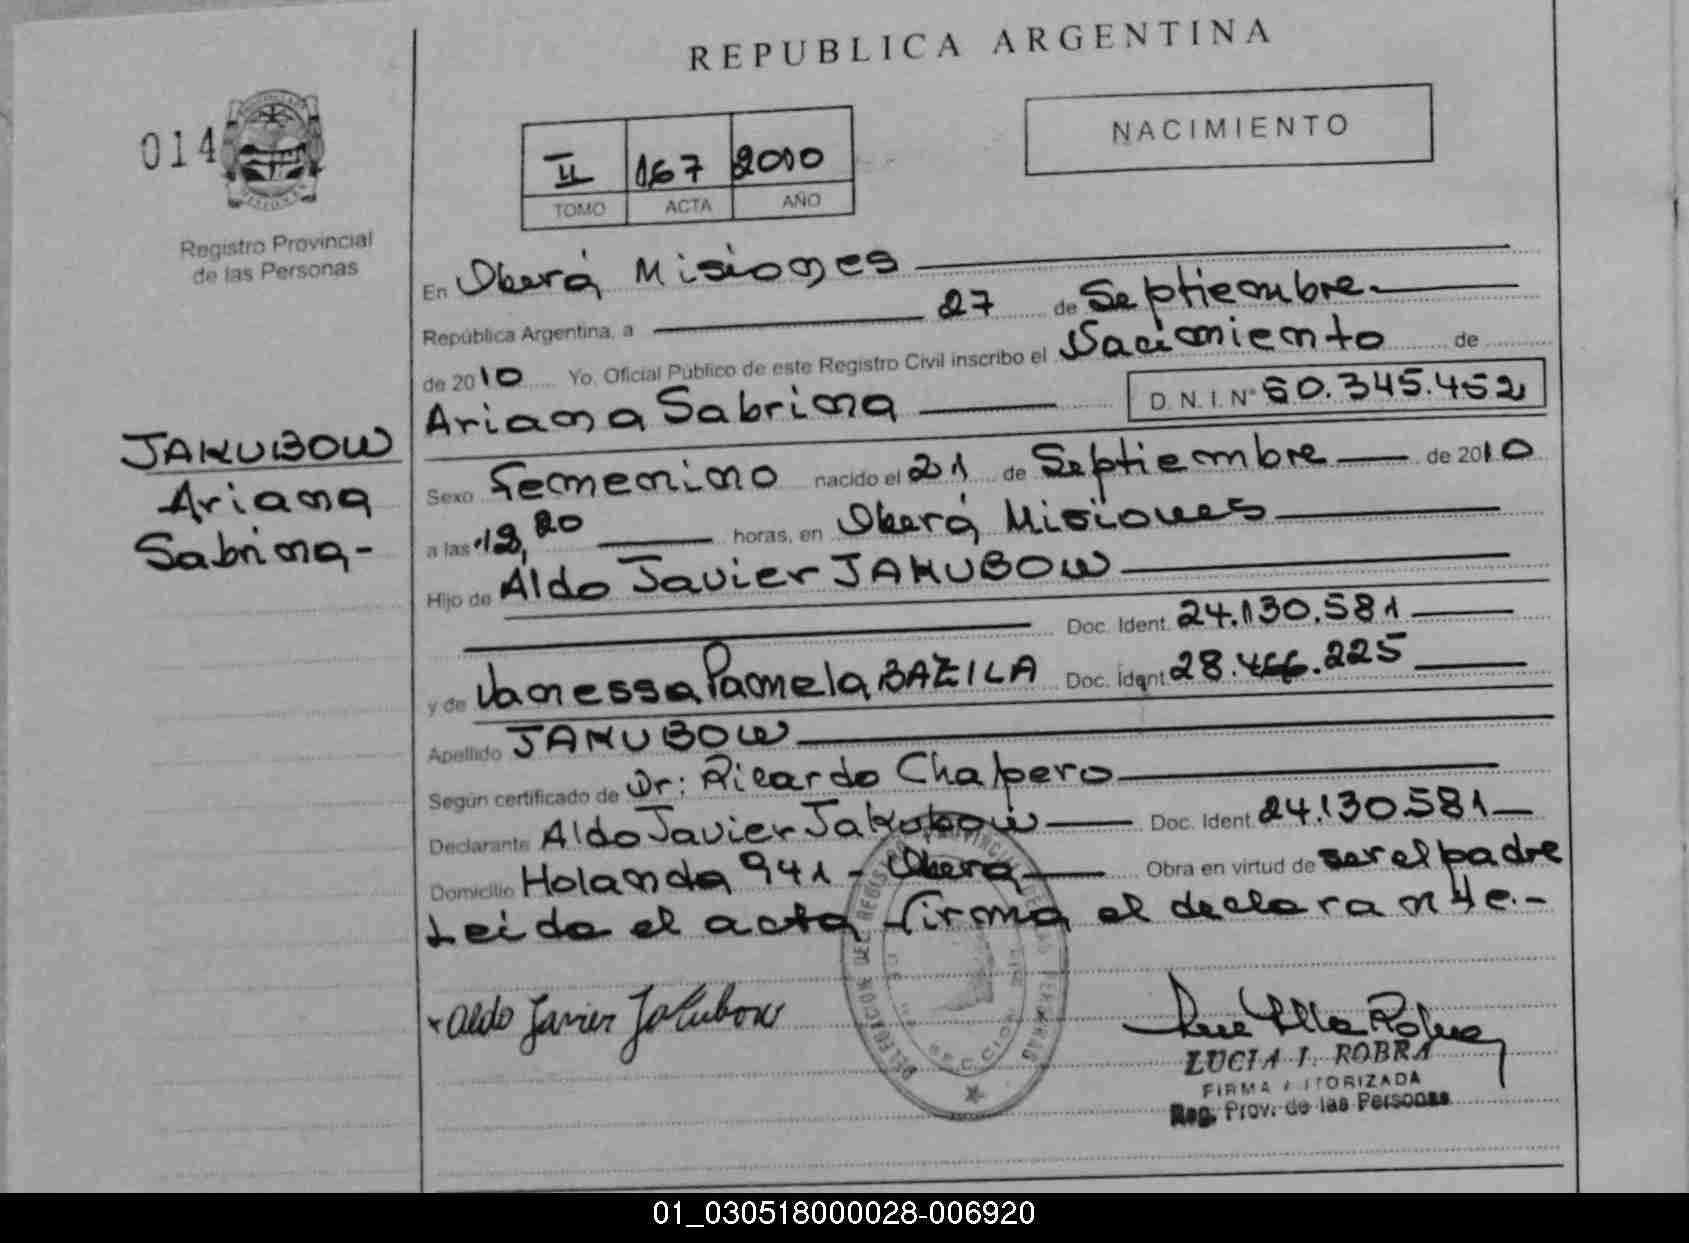 REPUBLICA ARGENTINA
014
NACIMIENTO
II 167 2010
TOMO ACTA AÑO
Registro Provincial
de las Personas
En Oberá Misiones
República Argentina, a 27 de Septiembre
de 2010 Yo, Oficial Público de este Registro Civil inscribo el Nacimiento de
Ariana Sabrina D.N.I. Nº 50.345.452
JAKUBOW
Ariana
Sabrina-
Sexo Femenino nacido el 21 de Septiembre de 2010
a las 12,20 horas, en Oberá Misiones
Hijo de Aldo Javier JAKUBOW
Doc. Ident. 24.130.581
y de Vanessa Pamela BAZILA Doc. Ident. 28.466.225
Apellido JAKUBOW
Según certificado de Dr: Ricardo Chapero
Declarante Aldo Javier Jakubow Doc. Ident. 24.130.581
Domicilio Holanda 941 - Oberá Obra en virtud de ser el padre
Leida el acta firma el declarante.-
Aldo Javier Jakubow
DELEGACION DEL REGISTRO PROVINCIAL DE LAS PERSONAS
LUCIA I. ROBRA
FIRMA AUTORIZADA
Reg. Prov. de las Personas
01_030518000028-006920